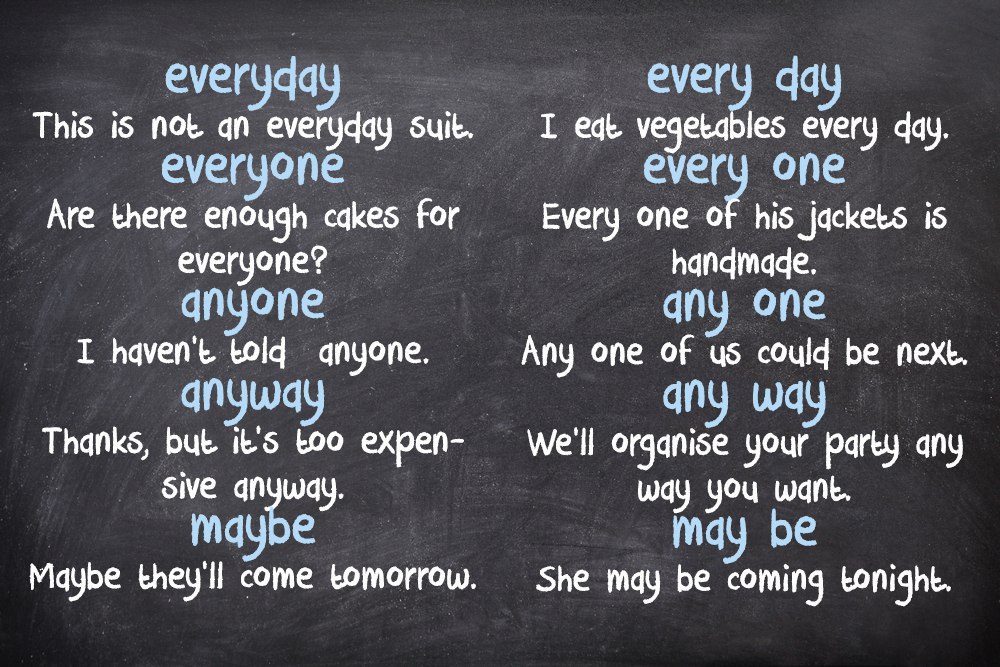 everyday
This is not an everyday suit.
everyone
Are there enough cakes for
everyone?
anyone
I haven't told anyone.
anyway
Thanks, but it's too expen-
sive anyway.
maybe
Maybe they'll come tomorrow.
every day
I eat vegetables every day.
every one
Every one of his jackets is
handmade.
any one
Any one of us could be next.
any way
We'll organise your party any
way you want.
may be
She may be coming tonight.